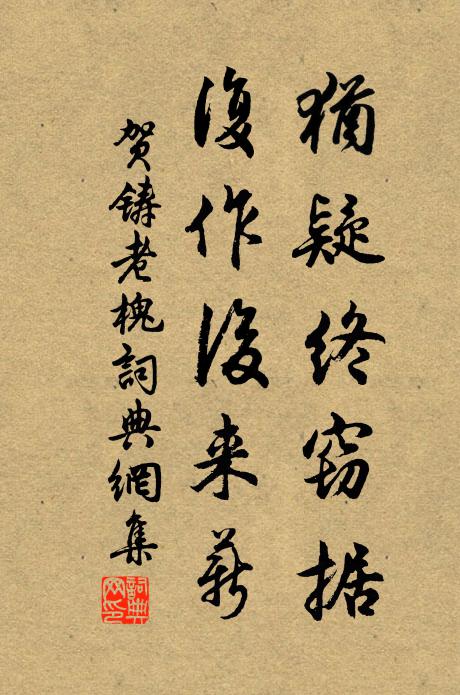 猶疑終窃据
復作後来薪
贺鑄老槐詞典網集
詞典网印